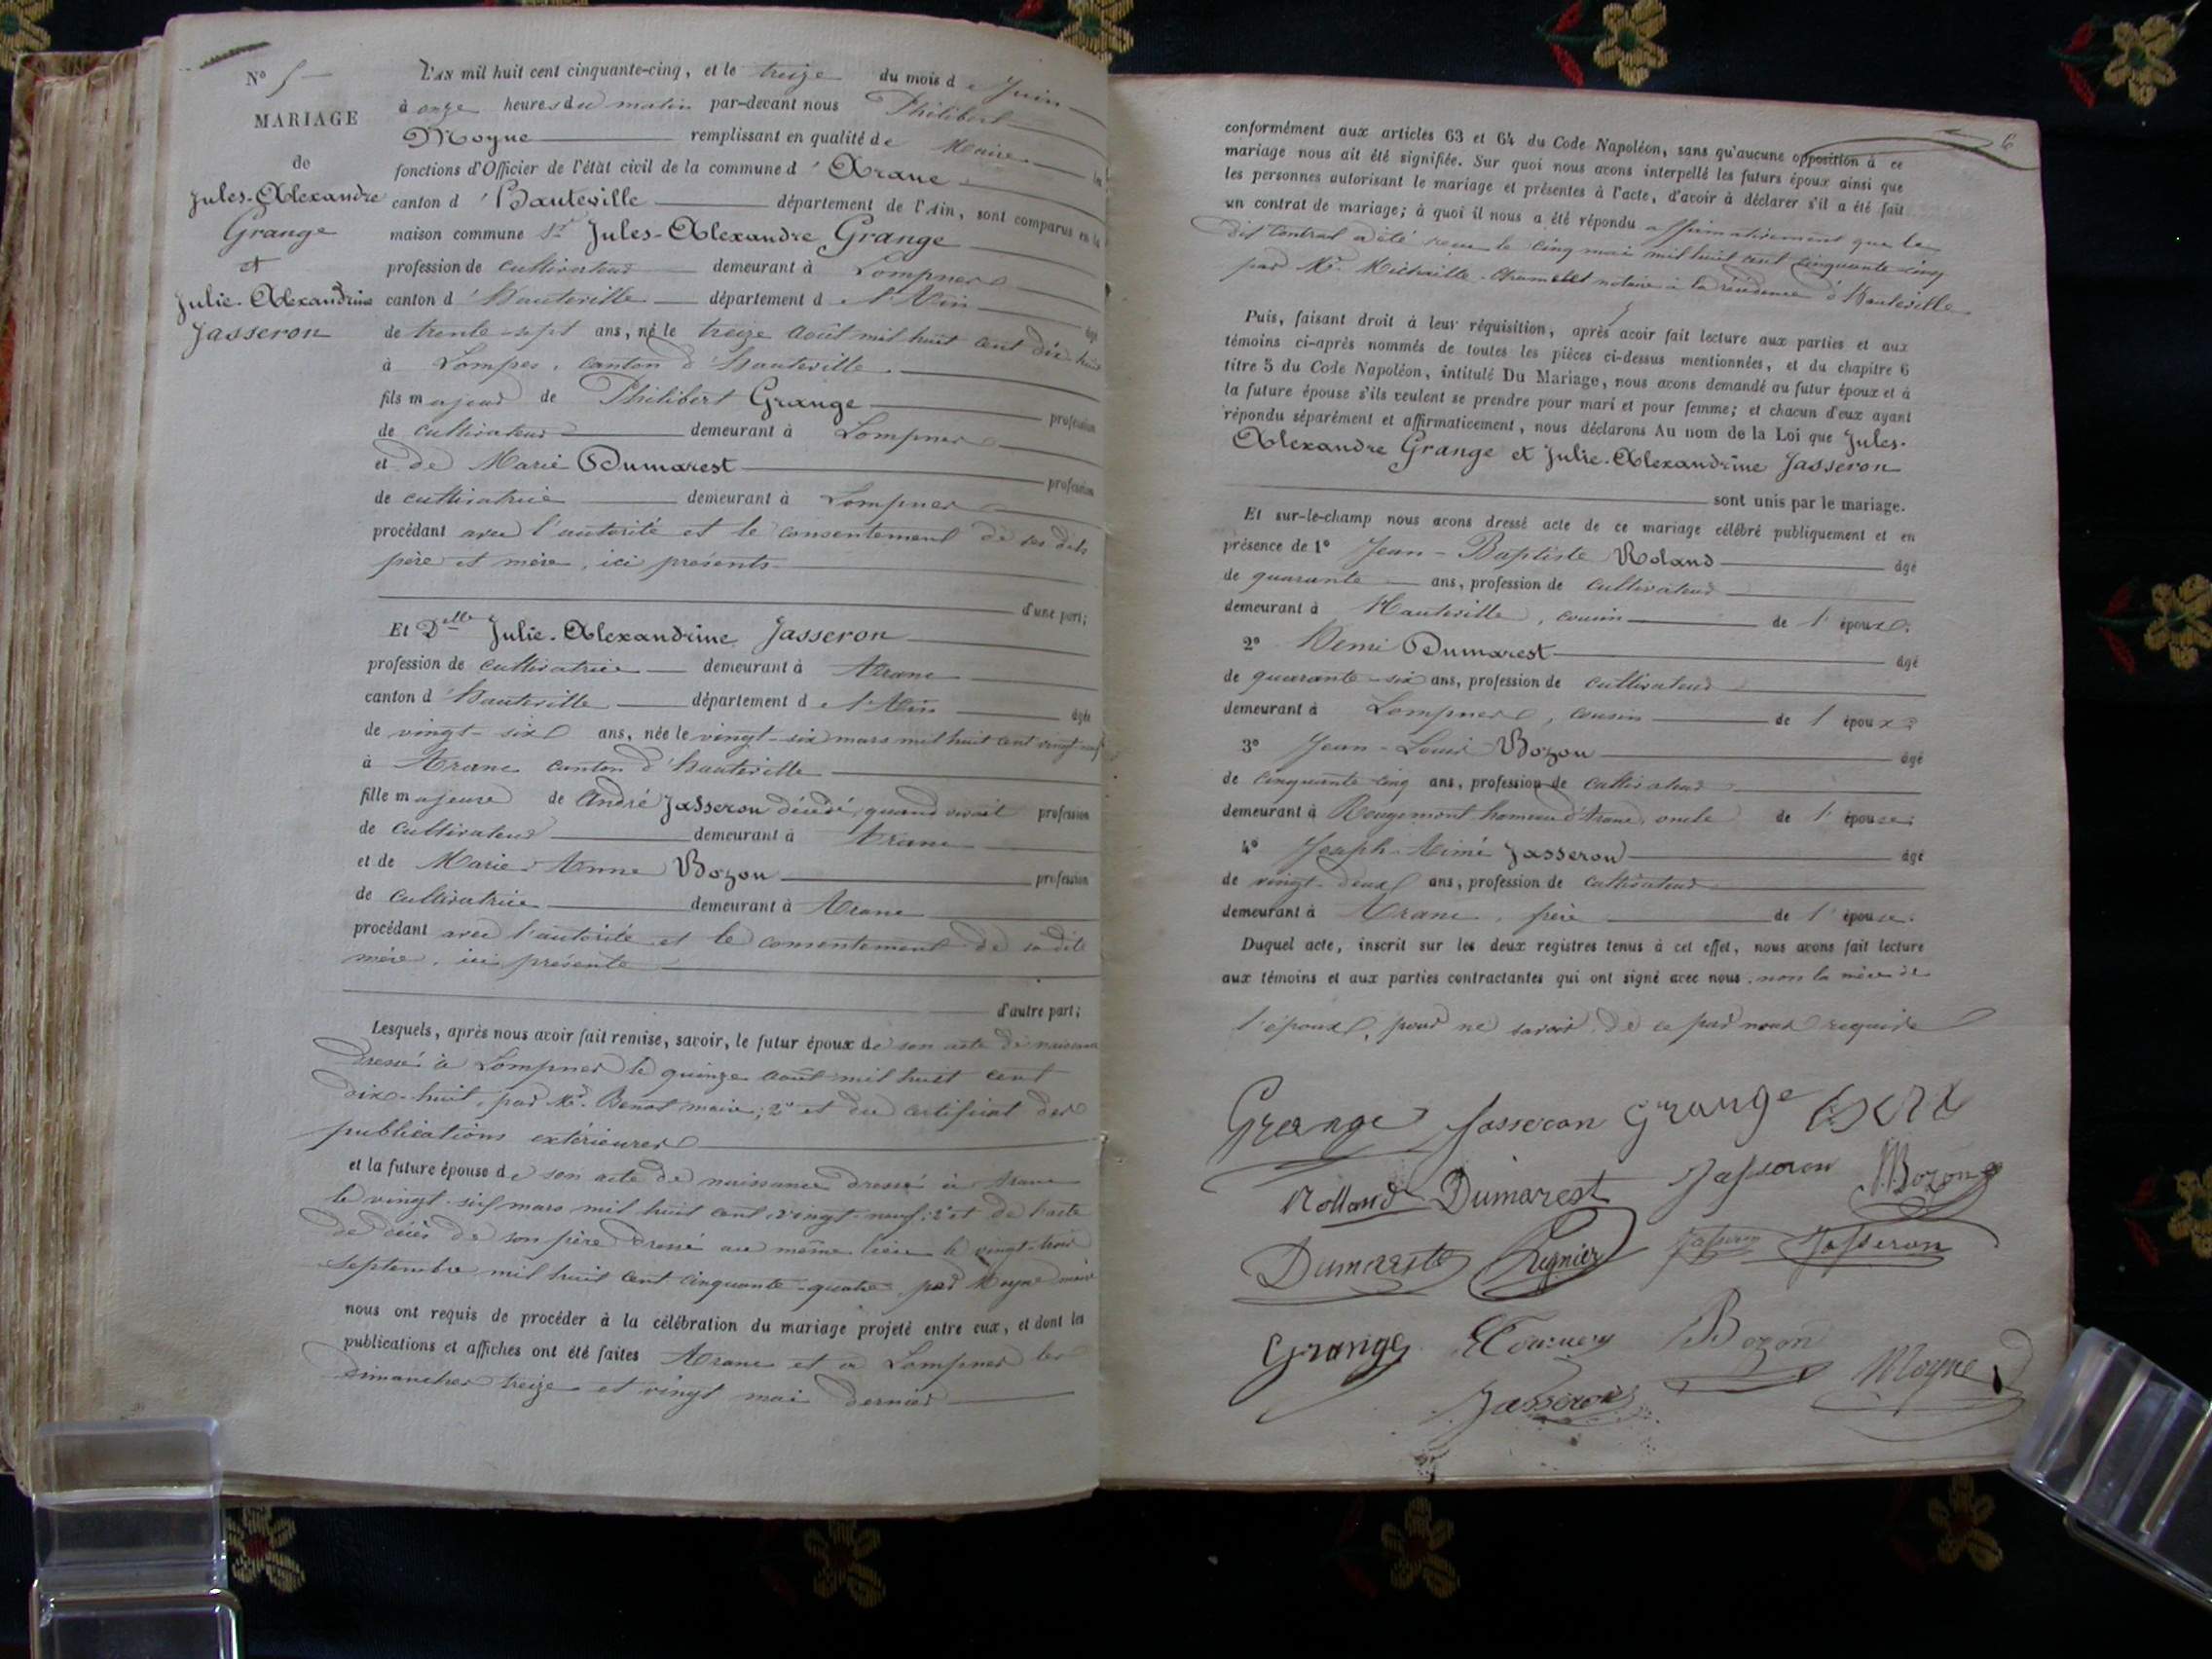 N° 5
MARIAGE
de
Jules-Alexandre
Grange
et
Julie-Alexandrine
Jasseron
L'AN mil huit cent cinquante-cinq, et le treize du mois de Juin
à onze heures du matin par-devant nous Philibert
Moyne remplissant en qualité de Maire les
fonctions d'Officier de l'état civil de la commune d'Arane
canton d'Hauteville département de l'Ain, sont comparus en la
maison commune Sr Jules-Alexandre Grange
profession de cultivateur demeurant à Lompnes
canton d'Hauteville département de l'Ain âgé
de trente-sept ans, né le treize août mil huit cent dix-huit
à Lompnes, canton d'Hauteville
fils majeur de Philibert Grange profession
de cultivateur demeurant à Lompnes
et de Marie Dumarest profession
de cultivatrice demeurant à Lompnes
procédant avec l'autorité et le consentement de ses dits
père et mère, ici présents
d'une part;
Et Delle Julie-Alexandrine Jasseron
profession de cultivatrice demeurant à Arane
canton d'Hauteville département de l'Ain âgée
de vingt-six ans, née le vingt-six mars mil huit cent vingt-neuf
à Arane canton d'Hauteville
fille majeure de André Jasseron décédé, quand vivait profession
de cultivateur demeurant à Arane
et de Marie-Anne Bozon profession
de cultivatrice demeurant à Arane
procédant avec l'autorité et le consentement de sa dite
mère, ici présente
d'autre part;
Lesquels, après nous avoir fait remise, savoir, le futur époux de son acte de naissance
dressé à Lompnes le quinze août mil huit cent
dix-huit, par Mr. Benot maire; 2° et du certificat des
publications extérieures
et la future épouse de son acte de naissance dressé à Arane
le vingt-six mars mil huit cent vingt-neuf; 2° et de l'acte
de décès de son père dressé au même lieu le vingt-trois
septembre mil huit cent cinquante-quatre, par Moyne maire
nous ont requis de procéder à la célébration du mariage projeté entre eux, et dont les
publications et affiches ont été faites Arane et à Lompnes les
dimanches treize et vingt mai dernier
6
conformément aux articles 63 et 64 du Code Napoléon, sans qu'aucune opposition à ce
mariage nous ait été signifiée. Sur quoi nous avons interpellé les futurs époux ainsi que
les personnes autorisant le mariage et présentes à l'acte, d'avoir à déclarer s'il a été fait
un contrat de mariage; à quoi il nous a été répondu affirmativement que le
dit contrat a été reçu le cinq mai mil huit cent cinquante-cinq
par Me. notaire à la résidence d'Hauteville
Puis, faisant droit à leur réquisition, après avoir fait lecture aux parties et aux
témoins ci-après nommés de toutes les pièces ci-dessus mentionnées, et du chapitre 6
titre 5 du Code Napoléon, intitulé Du Mariage, nous avons demandé au futur époux et à
la future épouse s'ils veulent se prendre pour mari et pour femme; et chacun d'eux ayant
répondu séparément et affirmativement, nous déclarons Au nom de la Loi que Jules-
Alexandre Grange et Julie-Alexandrine Jasseron
sont unis par le mariage.
Et sur-le-champ nous avons dressé acte de ce mariage célébré publiquement et en
présence de 1° Jean-Baptiste Roland âgé
de quarante ans, profession de cultivateur
demeurant à Hauteville, cousin de l'époux.
2° Remi Dumarest âgé
de quarante-six ans, profession de cultivateur
demeurant à Lompnes, cousin de l'époux.
3° Jean-Louis Bozon âgé
de cinquante-cinq ans, profession de cultivateur
demeurant à Rougemont hameau d'Arane, oncle de l'épouse.
4° Joseph-Aimé Jasseron âgé
de vingt-deux ans, profession de cultivateur
demeurant à Arane, frère de l'épouse.
Duquel acte, inscrit sur les deux registres tenus à cet effet, nous avons fait lecture
aux témoins et aux parties contractantes qui ont signé avec nous, non la mère de
l'époux, pour ne savoir, de ce par nous requise
Grange Jasseron Grange
Rolland Dumarest Jasseron Bozon
Dumareste Jasseron Jasseron
Grange Bozon Moyne
Jasseron